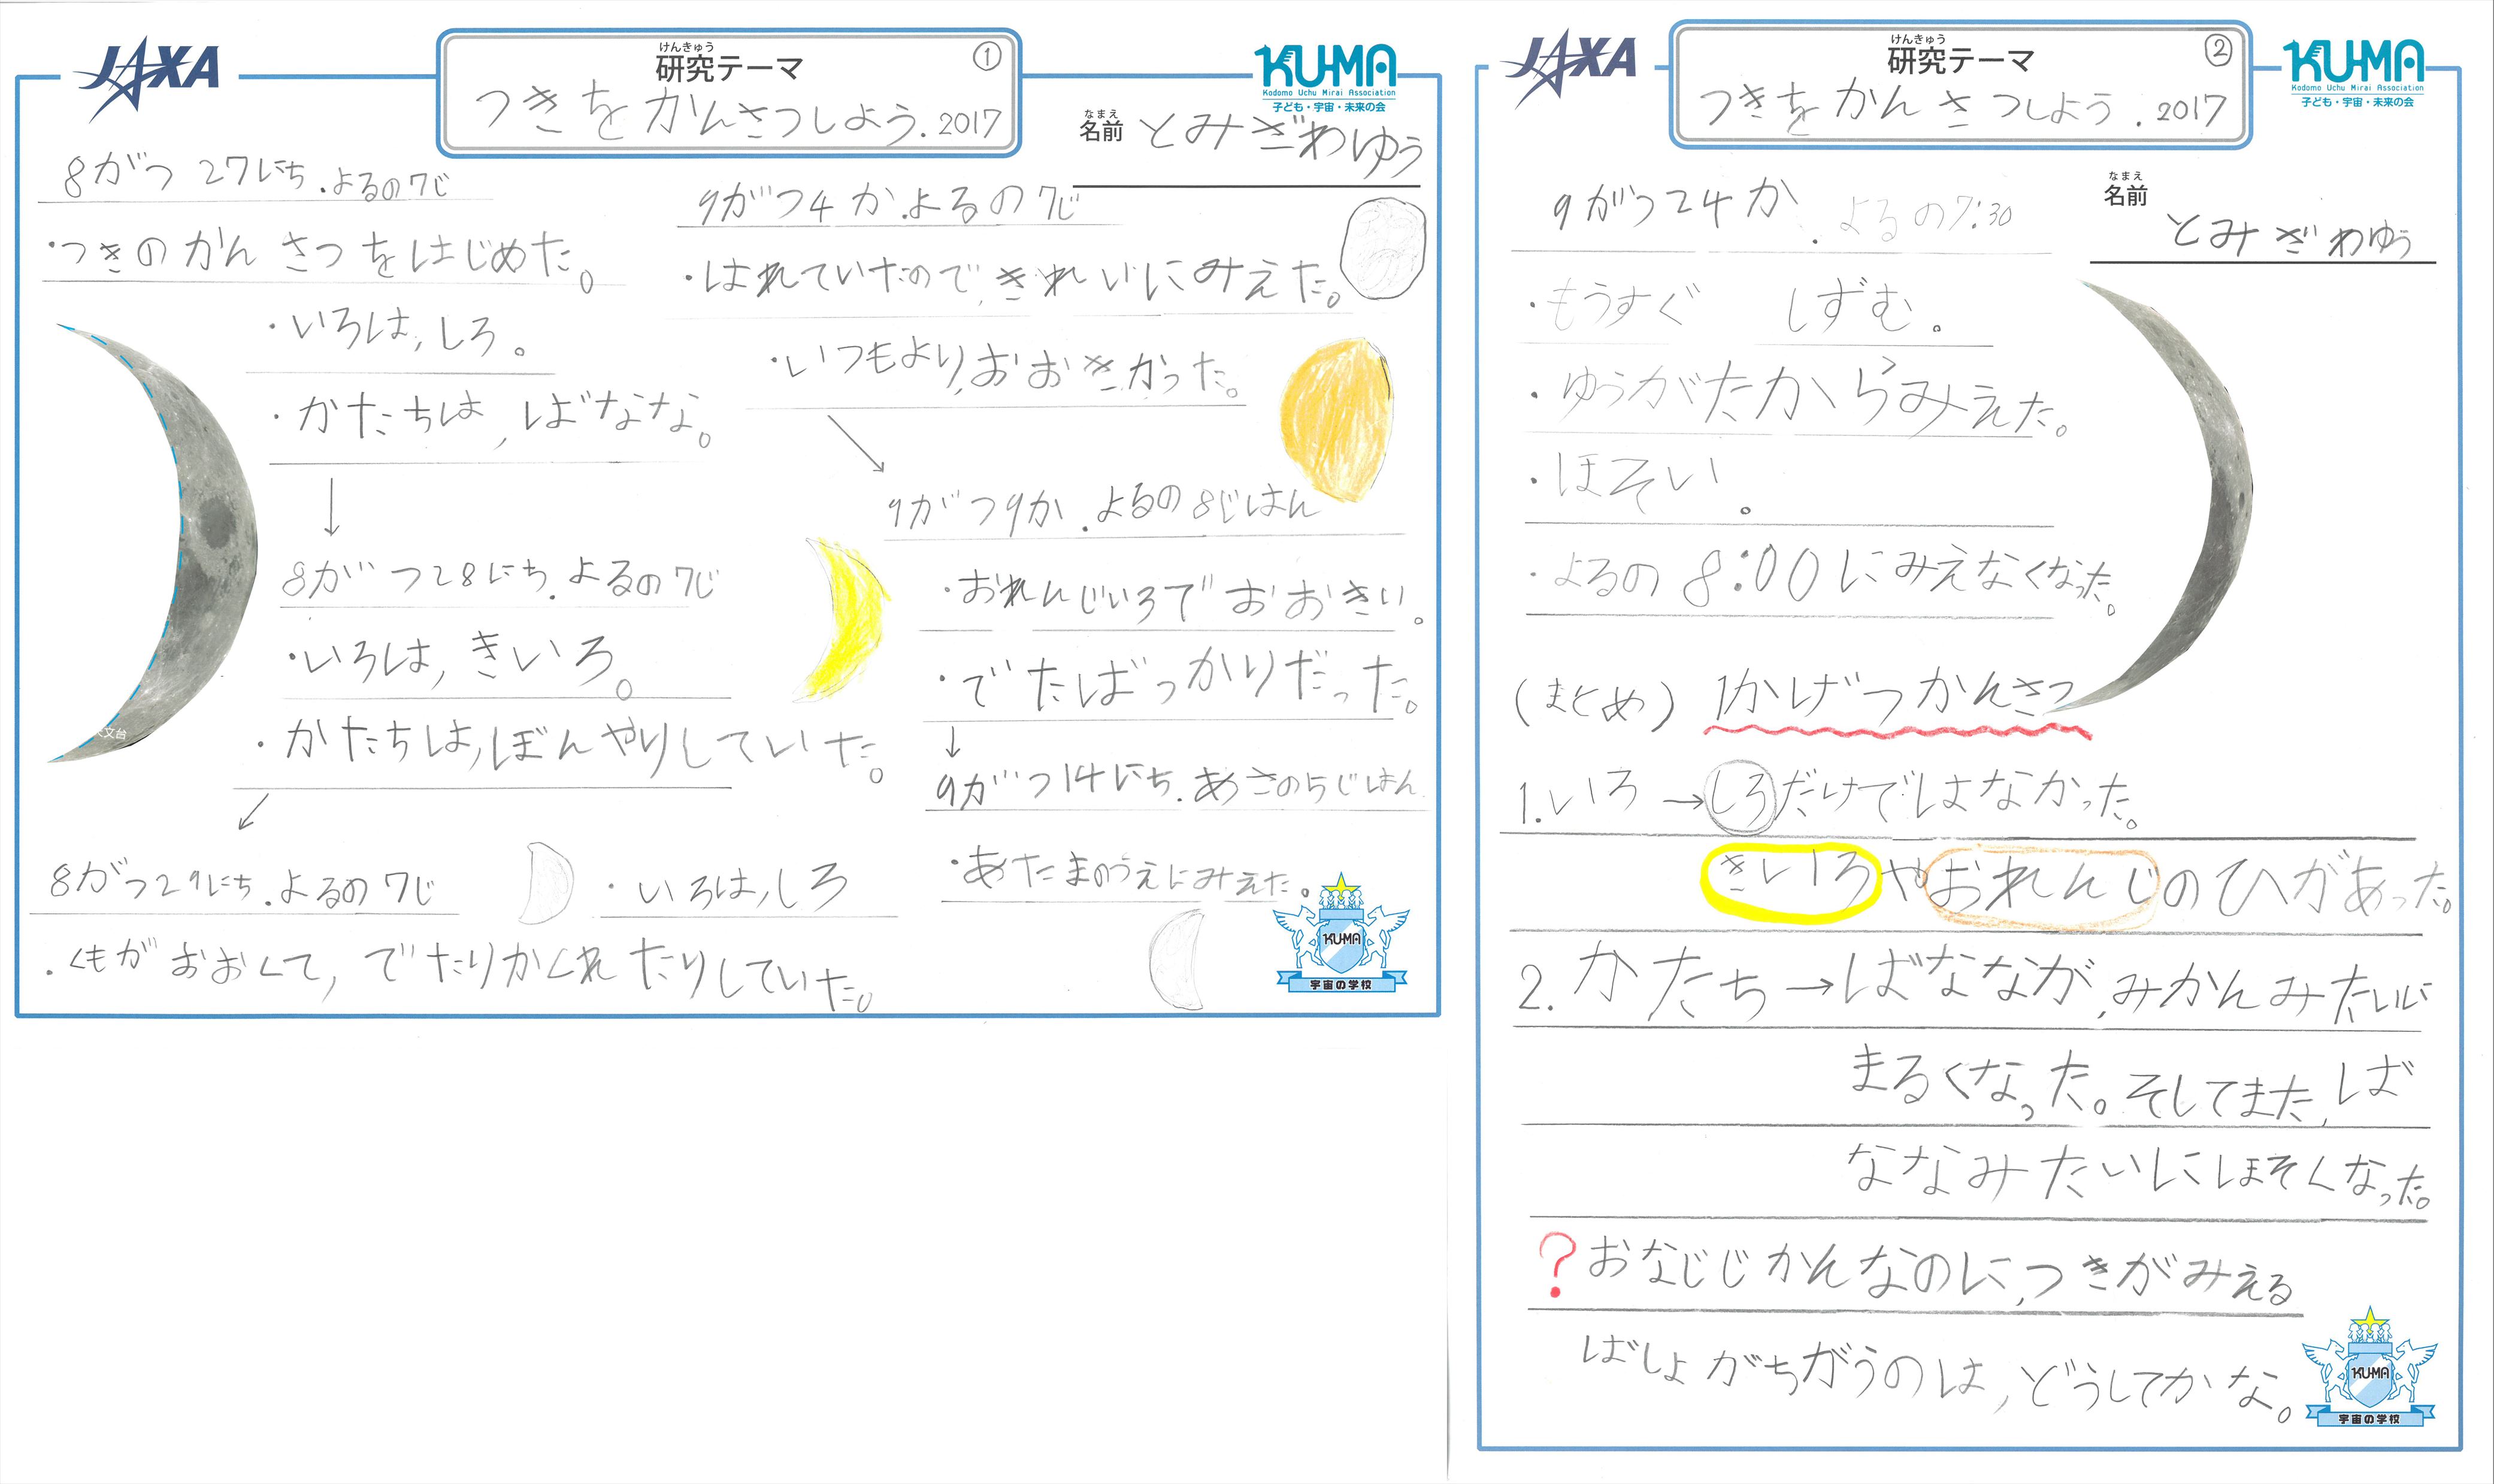 JAXA
けんきゅう
研究テーマ
①
つきをかんさつしよう.2017
KU-MA
Kodomo Uchu Mirai Association
子ども・宇宙・未来の会
なまえ
名前 とみざわゆう
8がつ 27にち.よるの7じ
・つきのかんさつをはじめた。
・いろは,しろ。
・かたちは,ばなな。
↓
8がつ28にち.よるの7じ
・いろは,きいろ。
・かたちは,ぼんやりしていた。
8がつ29にち.よるの7じ
・いろは,しろ
・くもがおおくて,でたりかくれたりしていた。
天文台
9がつ4か.よるの7じ
・はれていたので,きれいにみえた。
・いつもより,おおきかった。
9がつ9か.よるの8じはん
・おれんじいろでおおきい。
・でたばっかりだった。
↓
9がつ14にち.あさの5じはん
・あたまのうえにみえた。
KU-MA
宇宙の学校
JAXA
けんきゅう
研究テーマ
②
つきをかんさつしよう.2017
KU-MA
Kodomo Uchu Mirai Association
子ども・宇宙・未来の会
なまえ
名前
とみざわゆう
9がつ24か.よるの7:30
・もうすぐ しずむ。
・ゆうがたからみえた。
・ほそい。
・よるの8:00にみえなくなった。
(まとめ) 1かげつかんさつ
1.いろ→しろだけではなかった。
きいろやおれんじのひがあった。
2.かたち→ばななが,みかんみたいに
まるくなった。そしてまた,ば
ななみたいにほそくなった。
?おなじじかんなのに,つきがみえる
ばしょがちがうのは,どうしてかな。
KU-MA
宇宙の学校